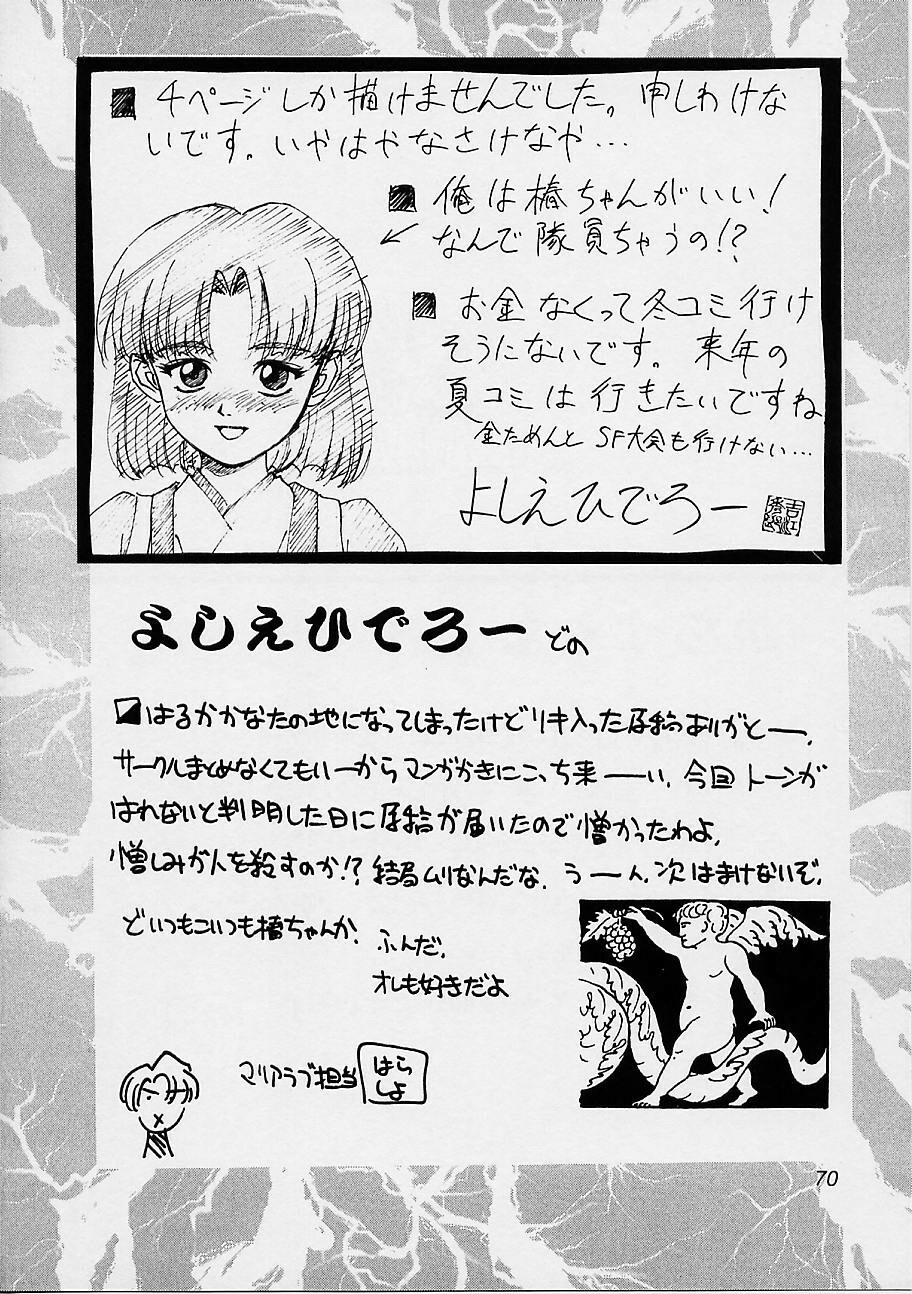 ■ 4ページしか描けませんでした。申しわけな
いです。いやはやなさけなや…
■ 俺は椿ちゃんがいい!
なんで隊員ちゃうの!?
■ お金なくって冬コミ行け
そうにないです。来年の
夏コミは行きたいですね
金ためんと SF大会も行けない…
よしえひでろー
よしえひでろーどの
はるかかなたの地になってしまったけどリキ入った原稿ありがとーっ.
サークルまとめなくてもいーからマンガかきにこっち来ーい. 今回トーンが
はれないと判明した日に原稿が届いたので憎かったわよ.
憎しみが人を殺すのか!? 結局ムリなんだな. うーん. 次はまけないぞ.
どいつもこいつも椿ちゃんか.
ふんだ.
オレも好きだよ
マリアラブ担当 はら
しょ
70